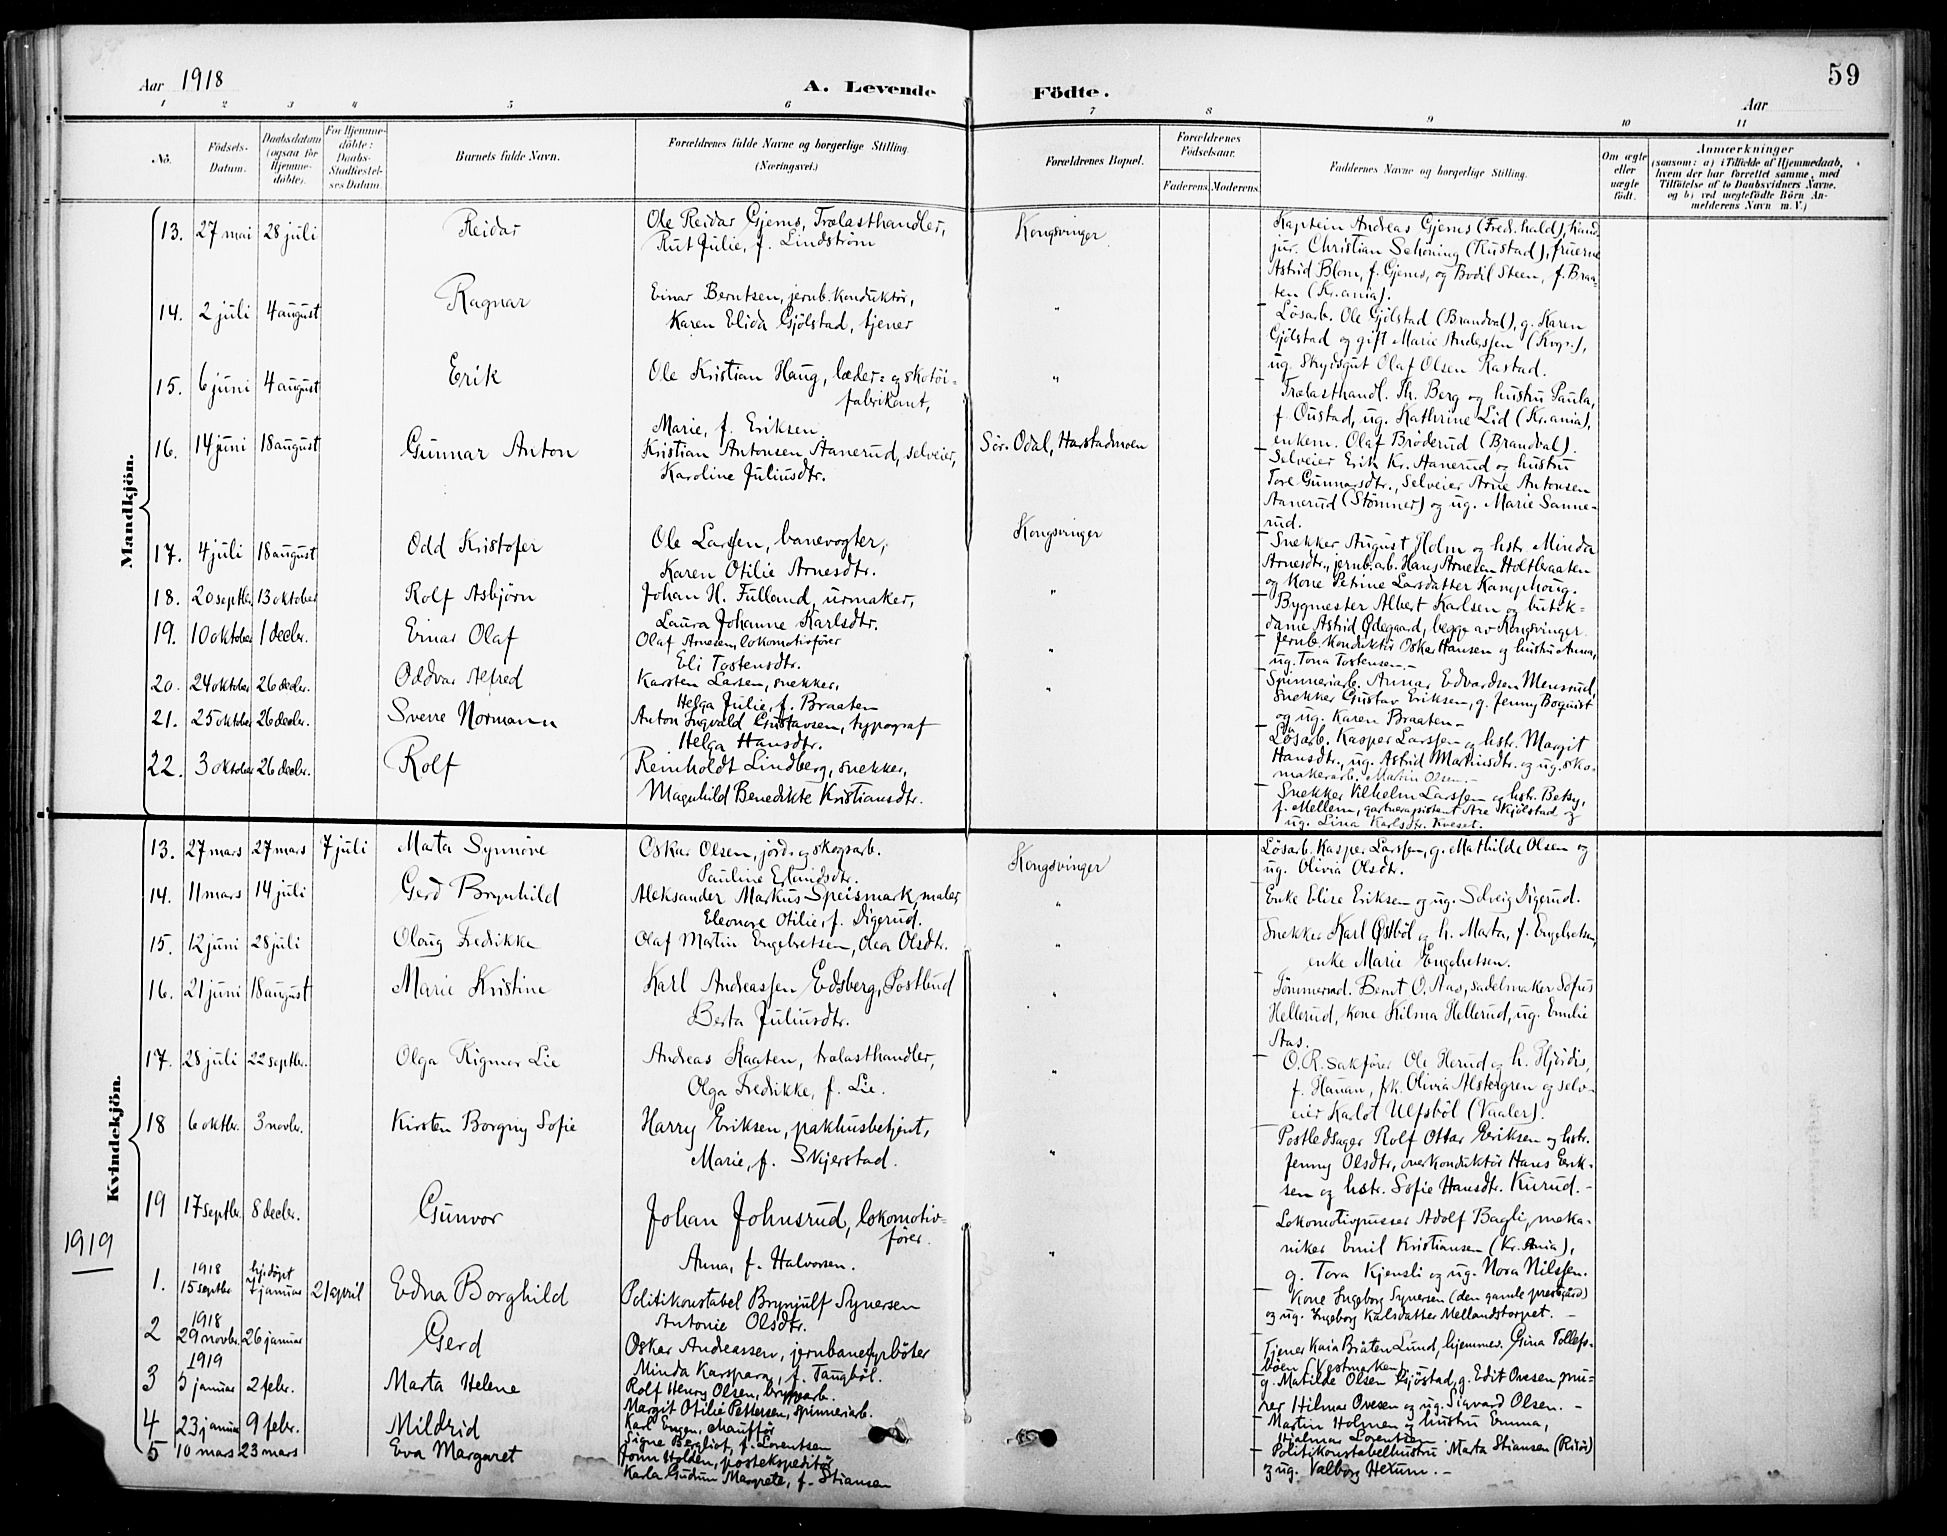 Aar 1918
A. Levende Födte.
59
Aar
1 2 3 4 5 6 7 8 9 10 11
No.
Födsels-Datum.
Daabsdatum (ogsaa for Hjemme-döbte).
For Hjemme-döbte: Daabs-Stadfæstelses Datum.
Barnets fulde Navn.
Forældrenes fulde Navne og borgerlige Stilling (Næringsvei.)
Forældrenes Bopæl.
Forældrenes Födselsaar.
Faderens. Moderens.
Faddernes Navne og borgerlige Stilling.
Om ægte eller uægte födt.
Anmærkninger
(saasom: a) i Tilfælde af Hjemmedaab, hvem der har forrettet samme, med Tilföielse af to Daabsvidners Navne, og b) ved uægtefödte Börn Anmelderens Navn m. V.)
Mandkjön.
13. 27 mai 28 juli Reidar Ole Reidar Gjems, Trælasthandler, Rut Julie, f. Lindstrøm Kongsvinger Kaptein Andreas Gjems (Fred.hald), kand. jur. Christian Schöning (Rustad), fruerne Astrid Blom, f. Gjems, og Bodil Steen, f. Braaten (Kr.ania).
14. 2 juli 4 august Ragnar Einar Berntsen, jernb. konduktør, Karen Elida Gjölstad, tjener " Løsarb. Ole Gjölstad (Brandval), g. Karen Gjölstad og gift Marie Anderssen (Kvgr.), ug. Skydsgut Olaf Olsen Rastad.
15. 6 juni 4 august Erik Ole Kristian Haug, læder- og skotöifabrikant, Marie, f. Eriksen " Trælasthandl. Th. Berg og hustru Paula, f. Oustad, ug. Kathrine Lid (Kr.ania), enkem. Olaf Bröderud (Brandval).
16. 14 juni 18 august Gunnar Anton Kristian Antonsen Aanerud, selveier, Karoline Juliusdtr. Sör-Odal, Harstadmoen Selveier Erik Kr. Aanerud og hustru Tore Gunnarsdtr., selveier Arne Antonsen Aanerud (Strømner) og ug. Marie Sannerud.
17. 4 juli 18 august Odd Kristofer Ole Larssen, banevogter, Karen Otilie Arnesdtr. Kongsvinger Snekker August Holm og hstr. Minda Arnesdtr., jernb.arb. Hans Arnesen Holtbraaten og kone Petrine Larsdatter Kamphoug.
18. 20 septbr. 13 oktober Rolf Asbjörn Johan H. Fulland, urmaker, Laura Johanne Karlsdtr. " Bygmester Albert Karlsen og butikdame Astrid Ødegaard, begge av Kongsvinger.
19. 10 oktober 1 decbr. Einar Olaf Olaf Arnesen, lokomotivfører Eli Tostensdtr. " Jernb. konduktör Oskar Hansen og hustru Anna, ug. Tona Tostensen.-
20. 24 oktober 26 decbr. Oddvar Alfred Karsten Larsen, snekker, Helga Julie, f. Braaten " Spinneriarb. Annar Edvardsen Merrsrud, Snekker Gustav Eriksen, g. Jenny Boquist og ug. Karen Braaten -
21. 25 oktober 26 decbr. Sverre Normann Anton Ingvald Gustavsen, typograf Helga Hansdtr. Løsarb. Kasper Larssen og hstr. Margit Hansdtr., ug. Astrid Martinsdtr. og ug. skomakerarb. Martin Olsen. -
22. 3 oktober 26 decbr. Rolf Reinholdt Lindberg, snekker, Magnhild Benedikte Kristiansdtr. Snekker Vilhelm Larssen og hstr. Betsy, f. Mellem, gartnerassistent Are Skjölstad og ug. Lina Karlsdtr. Kveset.
Kvindekjön.
13. 27 mars 27 mars 7 juli Marta Synnöve Oskar Olsen, jord- og skogsarb. Pauline Erlandsdtr. Kongsvinger Løsarb. Kasper Larssen, g. Mathilde Olsen og ug. Olivia Olsdtr.
14. 11 mars 14 juli Gerd Brynhild Aleksander Markus Speismark, maler Eleonore Otilie, f. Digerud. " Enke Elise Eriksen og ug. Solveig Digerud.
15. 12 juni 28 juli Olaug Fredikke Olaf Martin Engebretsen, Olea Olsdtr. " Snekker Karl Østböl og h. Marta, f. Engebretsen, enke Marie Engebretsen.
16. 21 juni 18 august Marie Kristine Karl Andreassen Edsberg, Postbud Berta Juliusdtr. " Tömmermd. Bernt O. Aas, sadelmaker Sofus Hellerud, kone Hilma Hellerud, ug. Emilie Aas.
17. 28 juli 22 septbr. Olga Rigmor Lie Andreas Kaaten, trælasthandler, Olga Fredikke, f. Lie. " O. R. Sakfører Ole Herud og h. Hjördis, f. Hanan, frk. Olivia Alstergren og selveier Karlot Ulfsböl (Vaaler).
18 6 oktbr. 3 novbr. Kirsten Borgny Sofie Harry Eriksen, pakhusbetjent, Marie, f. Skjerstad. " Postledsager Rolf Ottar Eriksen og hstr. Jenny Olsdtr, overkonduktör Hans Eriksen og hstr. Sofie Hansdtr. Kurud. -
19 17 septbr. 8 decbr. Gunvor Johan Johnsrud, lokomotivförer. Anna, f. Halvorsen. " Lokomotivpusser Adolf Bagli, mekaniker Emil Kristiansen (Kr.ania), g. Tora Kjensli og ug. Nora Nilssen.
1919
1. 1918 15 septbr hj.döpt januar 21 april Edna Borghild Politikonstabel Brynjulf Synersen Antonie Olsdtr. Kone Ingeborg Synersen (den gamle prestgård) og ug. Ingeborg Karlsdatter Mellandstorpet. -
2 1918 29 novbr. 26 januar Gerd Oskar Andreassen, jernbanefyrbøter Minda Karspara, f. Taugböl. Tjener Kaia Bråten Lund, hjemmev. Gina Tollefsböen (Vestmarken)
3 1919 5 januar 2 febr. Marta Helene Rolf Henry Olsen, Margit Otilie Pettersen, spinneriarb. g. Matilde Olsen Gjöstad, g. Edit Ovesen, Hilmar Ovesen og ug. Sigvard Olsen. -
4 23 januar 9 febr. Mildrid Karl Engen, chauffør Signe Bergliot, f. Lorentsen Martin Holmen og hustru Emma, Hjalmar Lorentsen
5 10 mars 23 mars Eva Margaret John Holden, postekspeditör Karla Gudrun Margrete, f. Stiansen Politikonstabelhustru Marta Stiansen (Risör) og ug. Valborg Hexum. -